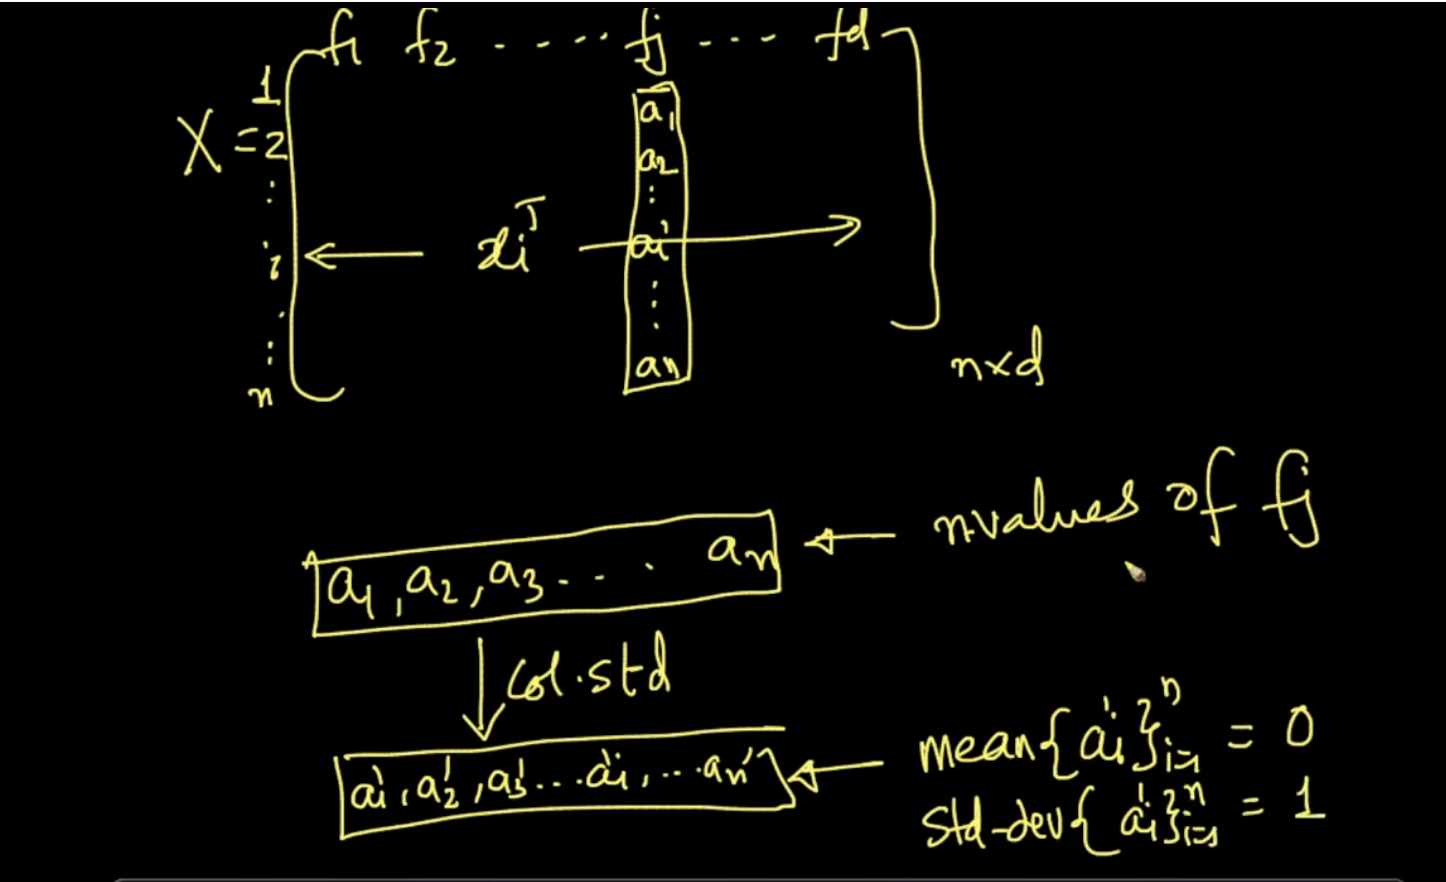 f1 f2 ..... fj ... fd
1
X = 2
a1
a2
⋮
i xiᵀ ai
⋮
n an
n×d
a1, a2, a3 ... . an ← n-values of fj
↓ col.std
a1', a2', a3' ... ai', ... an' ← mean{ai'}ⁿi=1 = 0
std-dev{ai'}ⁿi=1 = 1